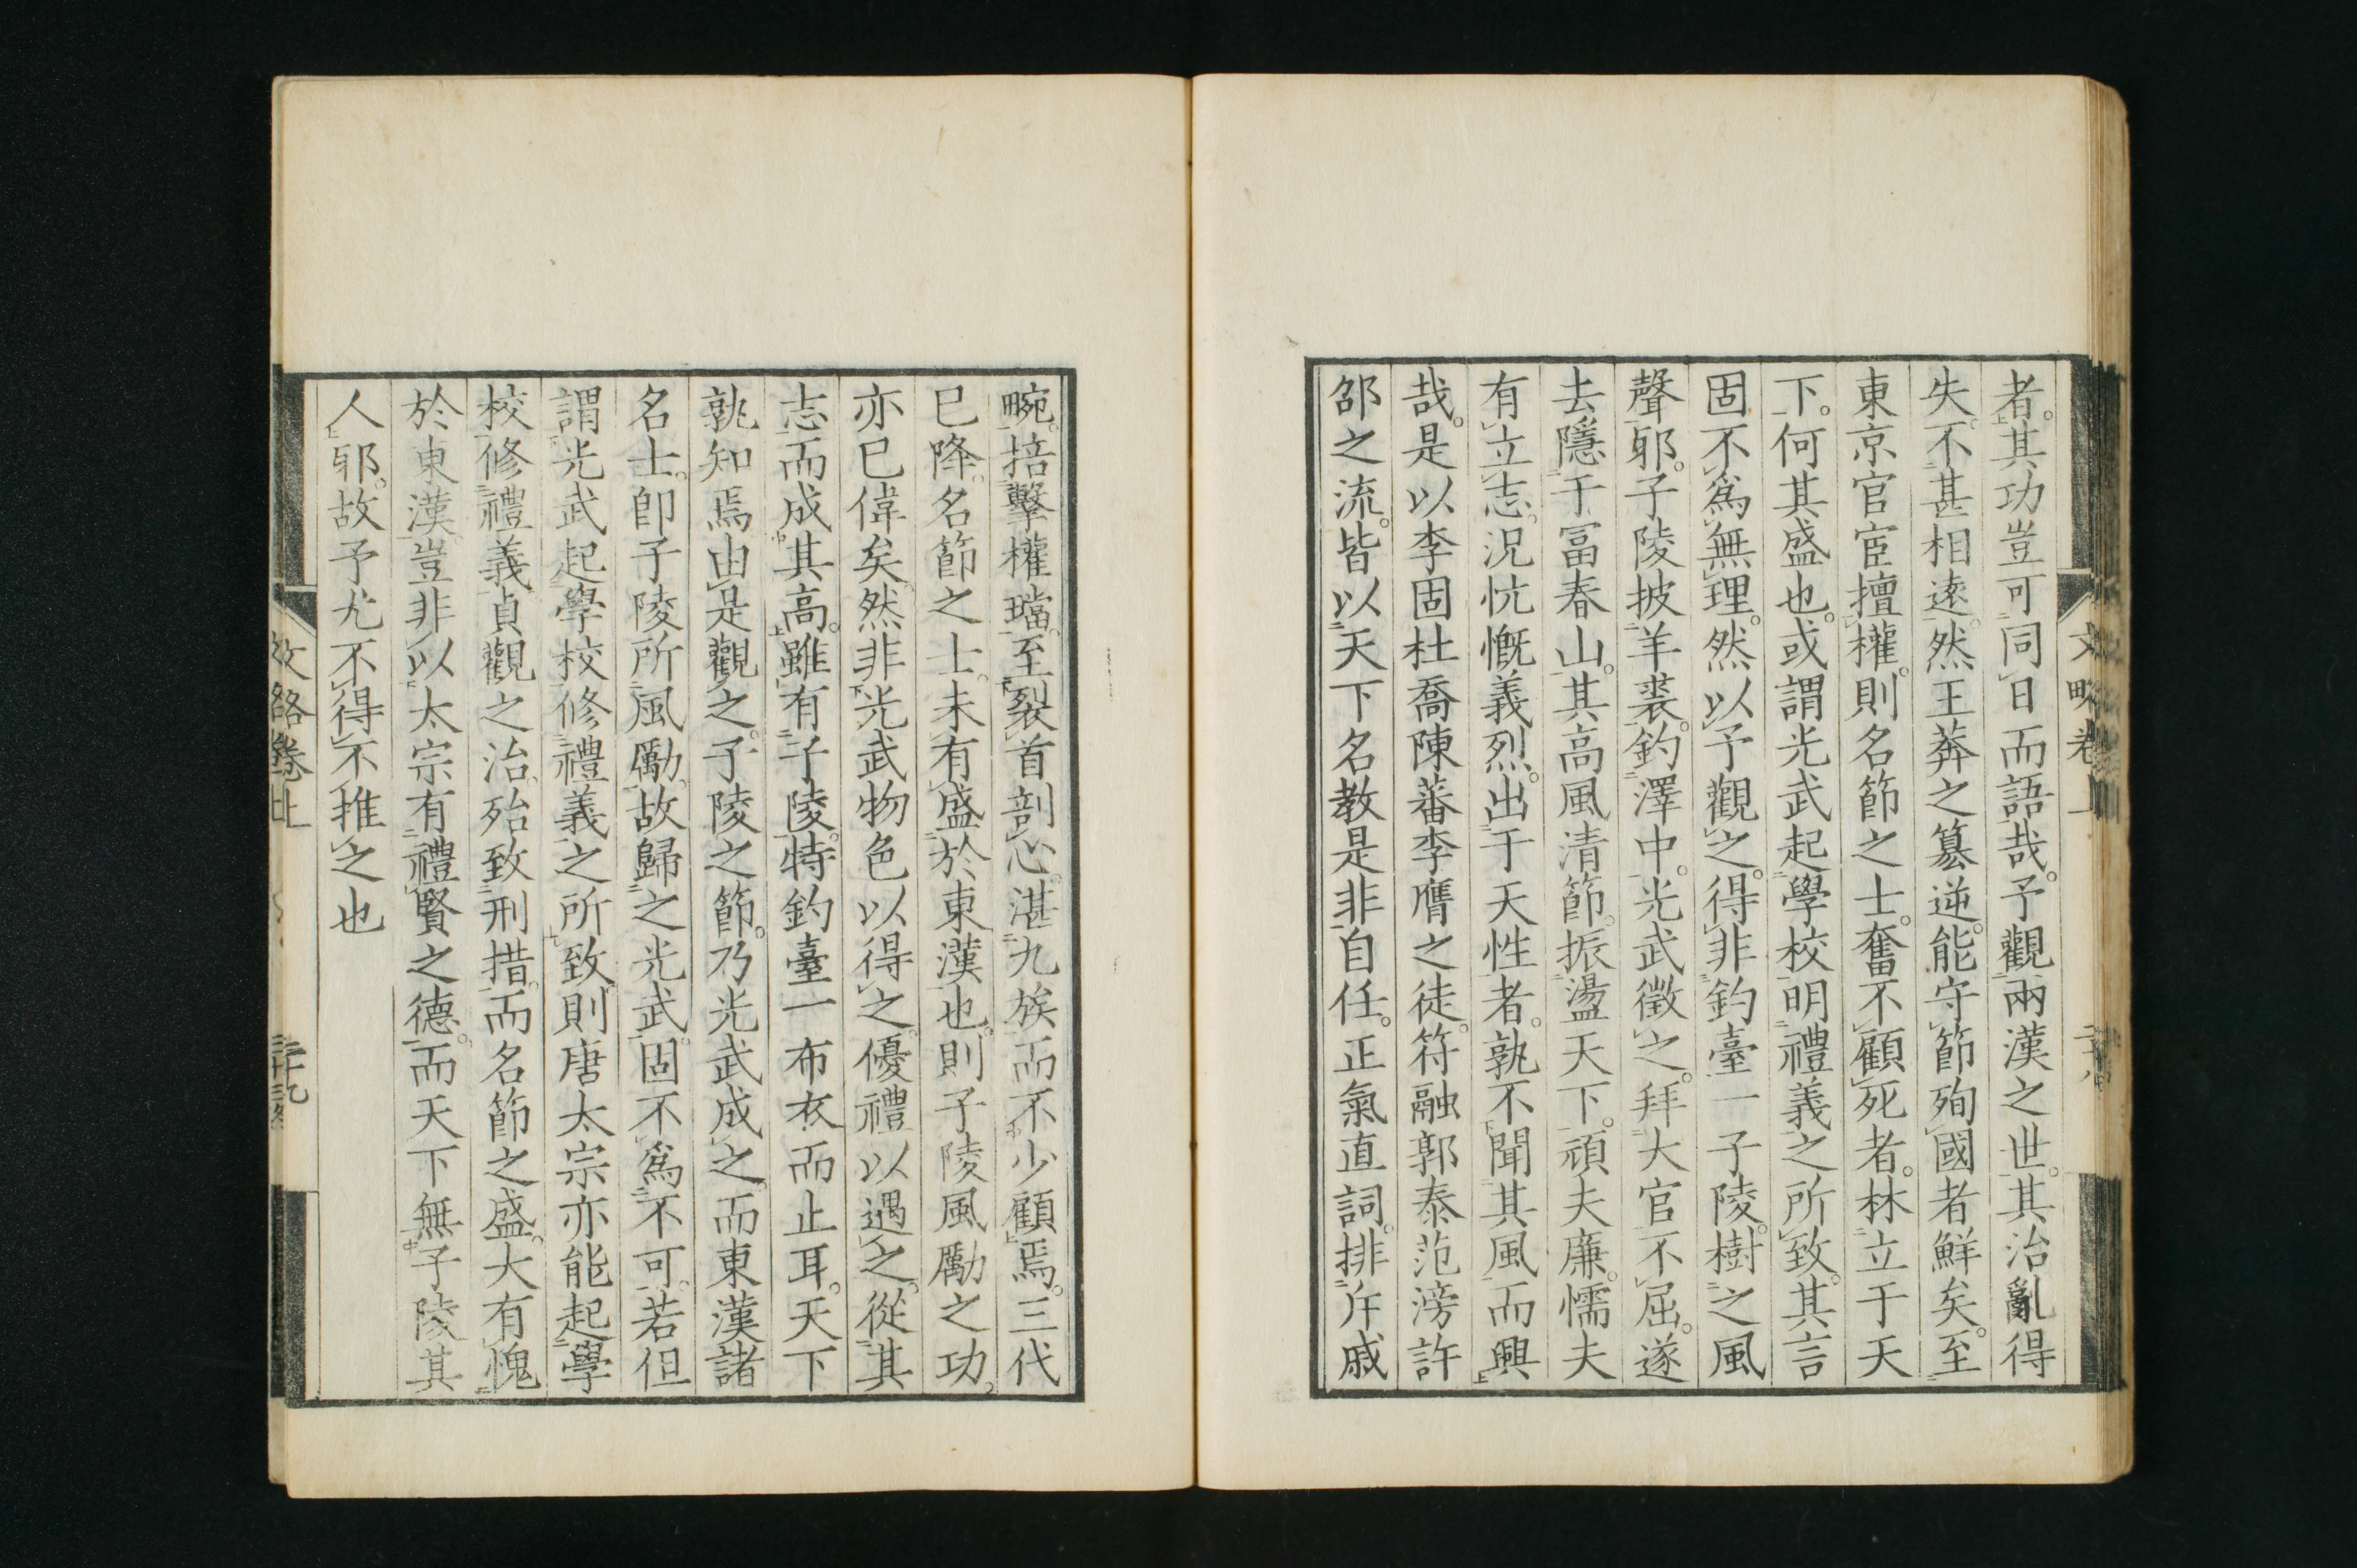 者。其功豈可同日而語哉。予觀兩漢之世。其治亂得
失。不甚相遠。然王莽之簒逆。能守節殉國者鮮矣。至
東京官宦擅權。則名節之士。奮不顧死者。林立于天
下。何其盛也。或謂光武起學校明禮義之所致。其言
固不爲無理。然以予觀之。得非釣臺一子陵。樹之風
聲邪。子陵披羊裘。釣澤中。光武徵之。拜大官不屈。遂
去隱于冨春山。其高風清節。振盪天下。頑夫廉。懦夫
有立志。況忼慨義烈。出于天性者。孰不聞其風而興
哉。是以李固杜喬陳蕃李膺之徒。符融郭泰范滂許
邵之流。皆以天下名教是非自任。正氣直詞。排斥戚
畹。掊擊權璫。至裂首剖心。湛九族而不少顧焉。三代
已降。名節之士。未有盛於東漢也。則子陵風勵之功。
亦已偉矣。然非光武物色以得之。優禮以遇之。從其
志而成其高。雖有子陵。特釣臺一布衣而止耳。天下
孰知焉。由是觀之。子陵之節。乃光武成之。而東漢諸
名士。卽子陵所風勵。故歸之光武。固不爲不可。若但
謂光武起學校修禮義之所致。則唐太宗亦能起學
校修禮義。貞觀之治。殆致刑措。而名節之盛。大有愧
於東漢。豈非以太宗有禮賢之德。而天下無子陵其
人邪。故予尤不得不推之也
文略卷上